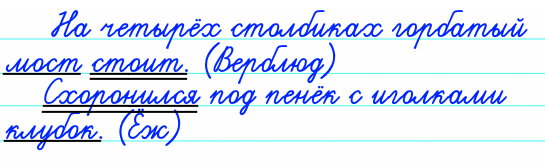 На четырёх столбиках горбатый
мост стоит. (Верблюд)
Схоронился под пенёк с иголками
клубок. (Ёж)